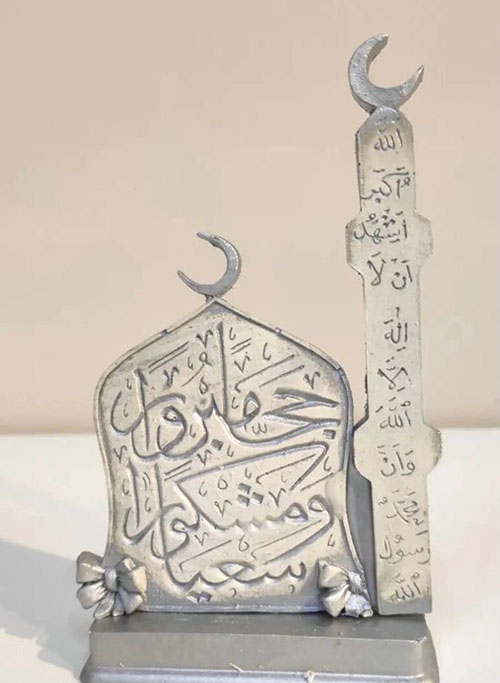 حجا مبرورا
ومشكورا
سعيا
الله
أكبر
أشهد
أن لا
إله
إلا
الله
وأن
محمدا
رسول
الله